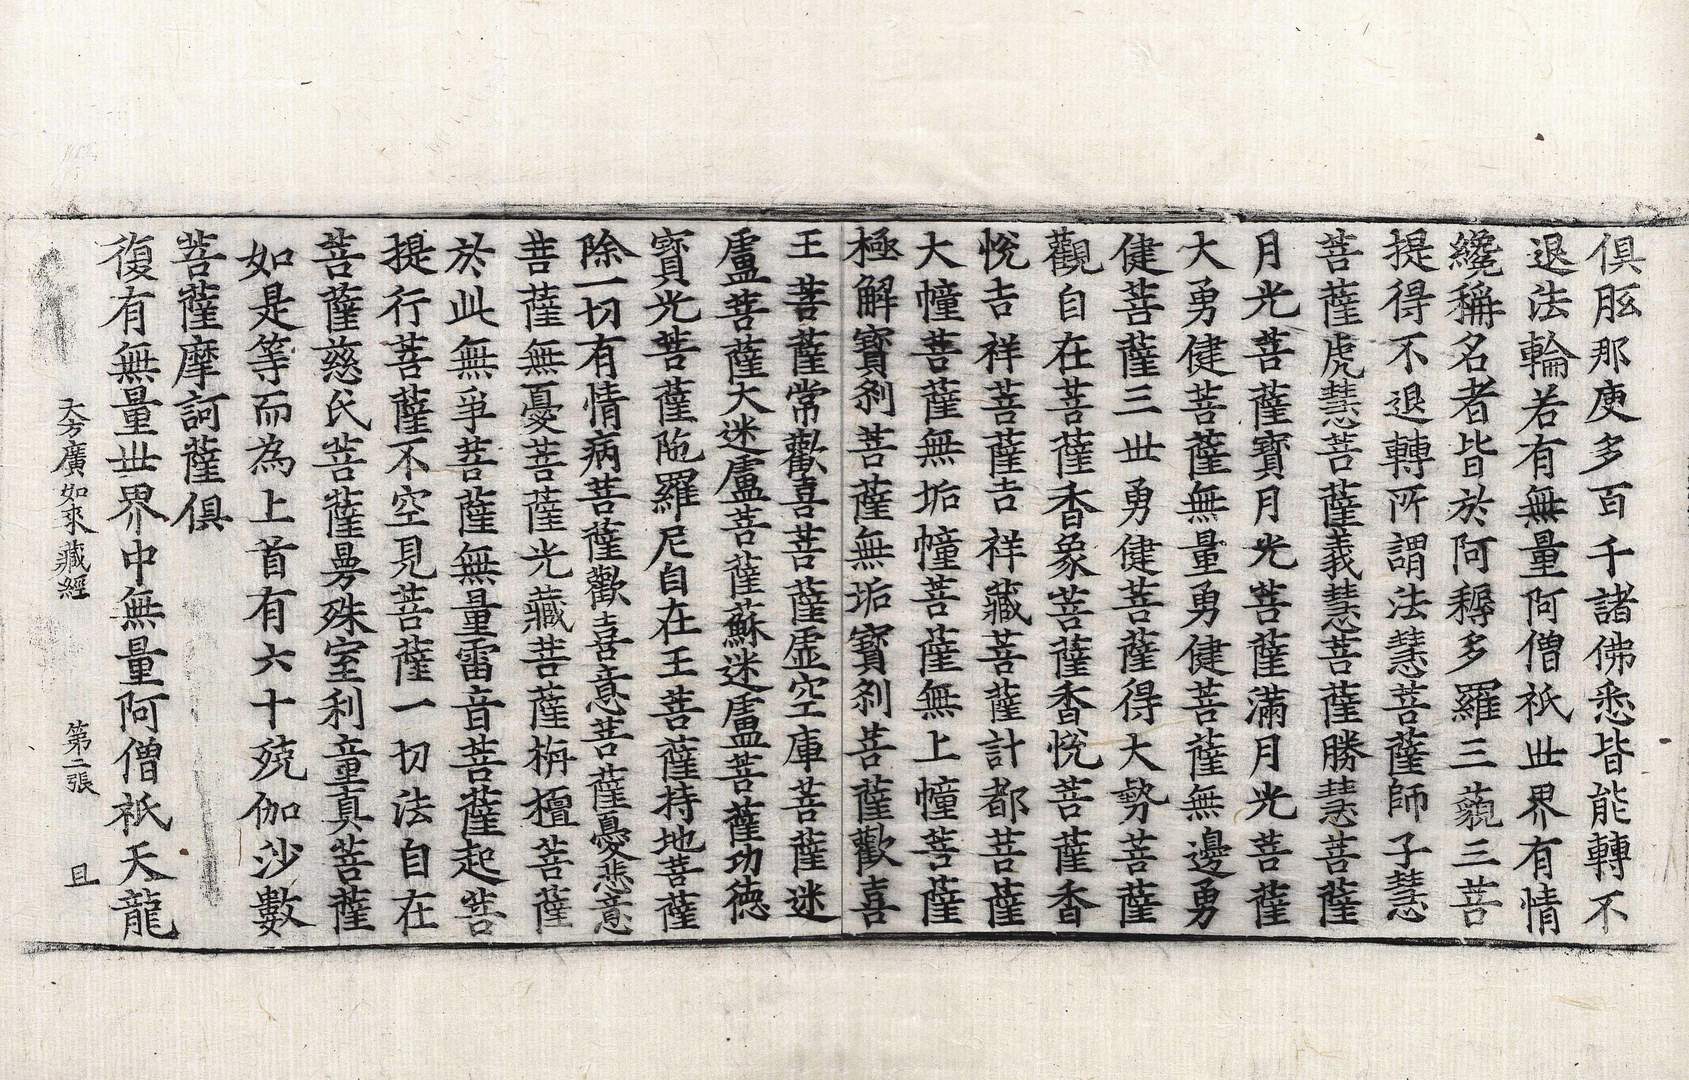 俱胝那庾多百千諸佛悉皆能轉不
退法輪若有無量阿僧祇世界有情
纔稱名者皆於阿耨多羅三藐三菩
提得不退轉所謂法慧菩薩師子慧
菩薩虎慧菩薩義慧菩薩勝慧菩薩
月光菩薩寶月光菩薩滿月光菩薩
大勇健菩薩無量勇健菩薩無邊勇
健菩薩三世勇健菩薩得大勢菩薩
觀自在菩薩香象菩薩香悅菩薩香
悅吉祥菩薩吉祥藏菩薩計都菩薩
大幢菩薩無垢幢菩薩無上幢菩薩
極解寶剎菩薩無垢寶剎菩薩歡喜
王菩薩常歡喜菩薩虛空庫菩薩迷
盧菩薩大迷盧菩薩蘇迷盧菩薩功德
寶光菩薩陁羅尼自在王菩薩持地菩薩
除一切有情病菩薩歡喜意菩薩憂悲意
菩薩無憂菩薩光藏菩薩栴檀菩薩
於此無爭菩薩無量雷音菩薩起菩
提行菩薩不空見菩薩一切法自在
菩薩慈氏菩薩曼殊室利童真菩薩
如是等而為上首有六十殑伽沙數
菩薩摩訶薩俱
復有無量世界中無量阿僧祇天龍
大方廣如來藏經 第二張 且